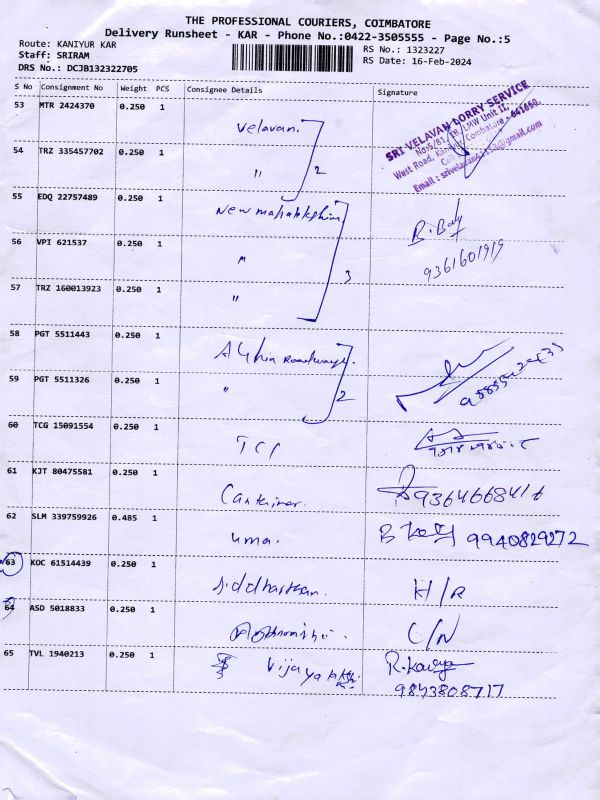 THE PROFESSIONAL COURIERS, COIMBATORE
Delivery Runsheet - KAR - Phone No.:0422-3505555 - Page No.:5
Route: KANIYUR KAR
Staff: SRIRAM
DRS No.: DCJB132322705
RS No.: 1323227
RS Date: 16-Feb-2024
S No Consignment No Weight PCS Consignee Details Signature
53 MTR 2424370 0.250 1 Velavan.
SRI VELAVAN LORRY SERVICE
West Road, Coimbatore - 641659.
54 TRZ 335457702 0.250 1 " 2
55 EDQ 22757489 0.250 1 New mahalakshmi B. Baly
9361601919
56 VPI 621537 0.250 1 "
3
57 TRZ 160013923 0.250 1 "
58 PGT 5511443 0.250 1 Roadways.
59 PGT 5511326 0.250 1 " 2
60 TCG 15091554 0.250 1 TCI
61 KJT 80475581 0.250 1 Container. 9364668416
62 SLM 339759926 0.485 1 uma. B 9940829272
63 KOC 61514439 0.250 1 Siddharthan. H/R
64 ASD 5018833 0.250 1 C/N
65 TVL 1940213 0.250 1 R. Kavya
9843808717